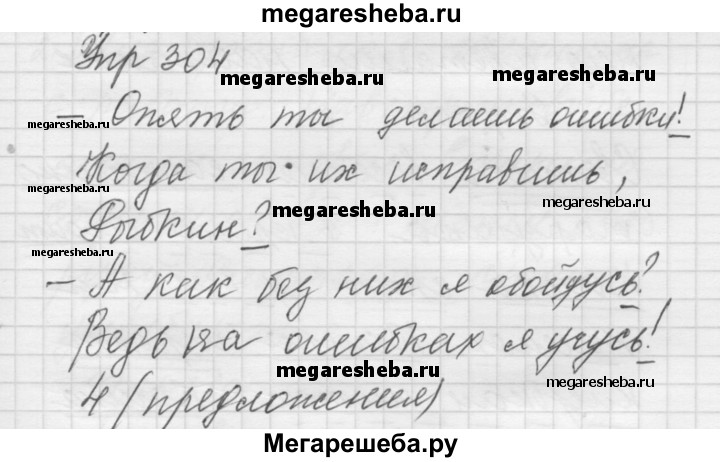 megaresheba.ru
Упр 304
megaresheba.ru
megaresheba.ru
megaresheba.ru
– Опять ты делаешь ошибки!
Когда ты их исправишь,
megaresheba.ru
megaresheba.ru
megaresheba.ru
Рыбкин?
megaresheba.ru
– А как без них я обойдусь?
Ведь на ошибках я учусь!
megaresheba.ru
megaresheba.ru
4 (предложения)
Мегарешеба.ру